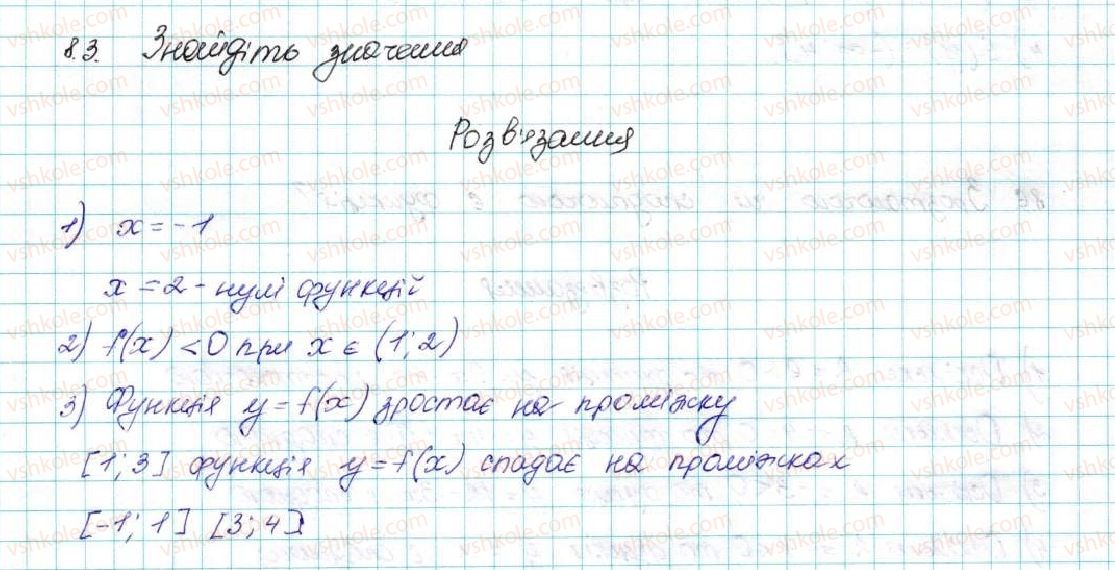 8.3. Знайдіть значення
Розв'язання
1) x = -1
x = 2 - нулі функцій
2) f(x) < 0 при x є (1; 2)
3) Функція y = f(x) зростає на проміжку
[1; 3] функція y = f(x) спадає на проміжках
[-1; 1] [3; 4]